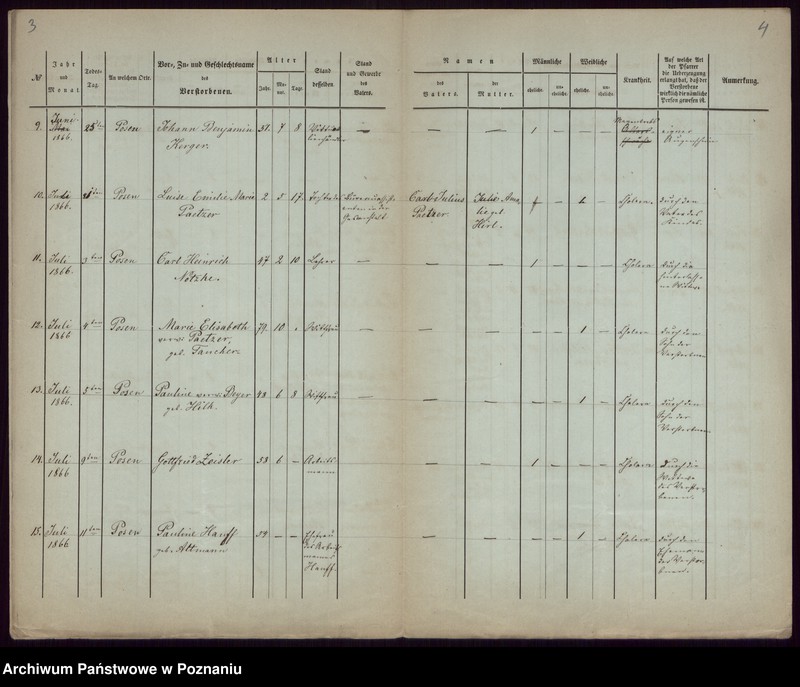 3
4
№
Jahr
und
Monat
Todes-
Tag.
An welchem Orte.
Vor-, Zu- und Geschlechtsname
des
Verstorbenen.
Alter
Jahr.
Mo-
nat.
Tage.
Stand
desselben
Stand
und Gewerbe
des
Vaters.
Namen
des
Vaters.
der
Mutter.
Männliche
eheliche.
un-
eheliche.
Weibliche
eheliche.
un-
eheliche.
Krankheit.
Auf welche Art
der Pfarrer
die Ueberzeugung
erlangt hat, daß der
Verstorbene
wirklich die nämliche
Person gewesen ist.
Anmerkung.
9. Juni 1866. 25ten Posen Johann Benjamin Kerger. 51. 7 8 — — — 1 — — — eigner
10. Juli 1866. Posen Luise Emilie Marie Paetzer 2 5 17. Tochter Carl Julius Paetzer. Julie Ama-
lie geb.
Hirl. — 1. — Cholera. durch den
Vater des
Kindes.
11. Juli 1866. 3ten Posen Carl Heinrich Nötzke. 47 2 10 Lehrer — — — 1 — — — Cholera Durch die
12. Juli 1866 4ten Posen Marie Elisabeth
verw: Paetzer,
geb. Taucher. 79. 10 . Wittfrau — — — — — 1 — Cholera durch den
Sohn der
Verstorbenen
13. Juli 1866. 5ten Posen Pauline verw: Beyer
geb. Hilk. 43 6 8 Wittfrau — — — — — 1 — Cholera durch den
Sohn der
Verstorbenen
14. Juli 1866 9ten Posen Gottfried Zeisler 53 6 — Arbeits-
mann — — 1 — — — Cholera Durch die
Wittwe
des Verstor-
benen.
15. Juli 1866. 11ten Posen Pauline Hanff
geb. Altmann 52 — — Ehefrau
des Arbeits-
mannes
Hanff. — — — — 1 — Cholera durch den
Ehemann
der Verstor-
benen.
Archiwum Państwowe w Poznaniu